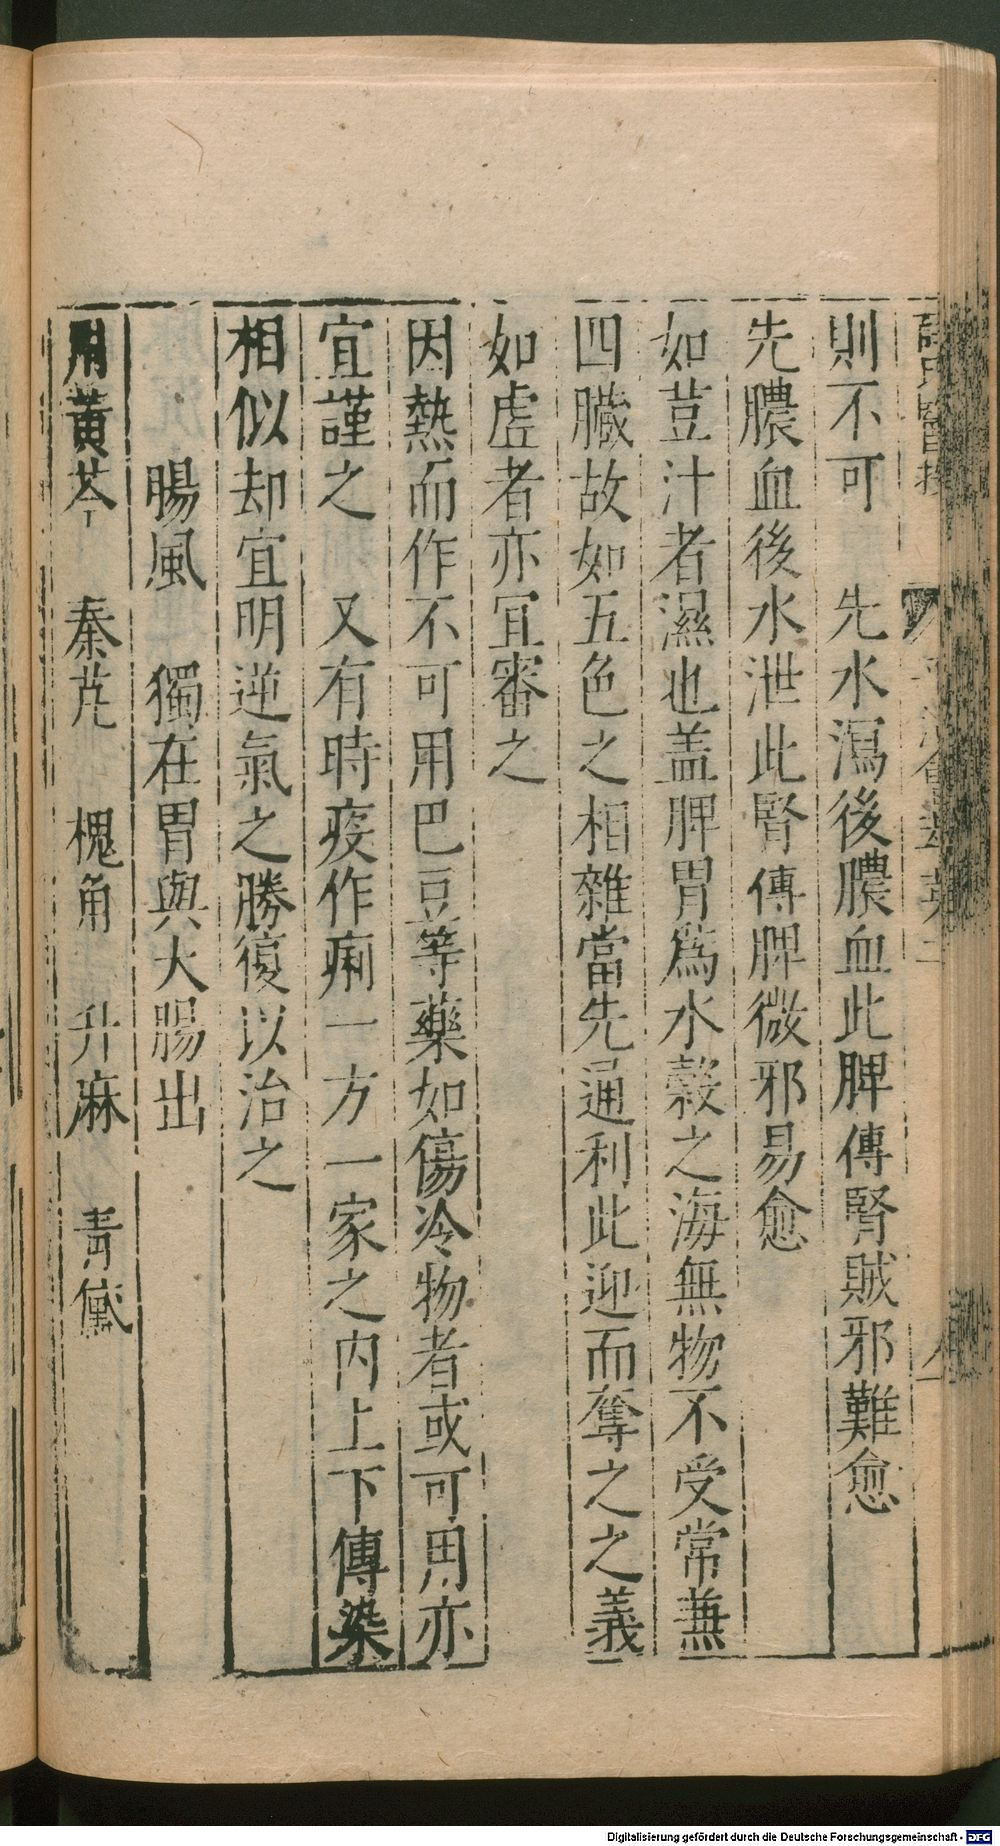 則不可　先水瀉後膿血此脾傳腎賊邪難愈
先膿血後水泄此腎傳脾微邪易愈
如荳汁者濕也盖脾胃爲水穀之海無物不受常兼
四臟故如五色之相雜當先通利此迎而奪之之義
如虛者亦宜審之
因熱而作不可用巴豆等藥如傷冷物者或可用亦
宜謹之　又有時疫作痢一方一家之内上下傳染
相似却宜明逆氣之勝復以治之
腸風　獨在胃與大腸出
用黄芩　秦艽　槐角　升麻　青黛
Digitalisierung gefördert durch die Deutsche Forschungsgemeinschaft - DFG